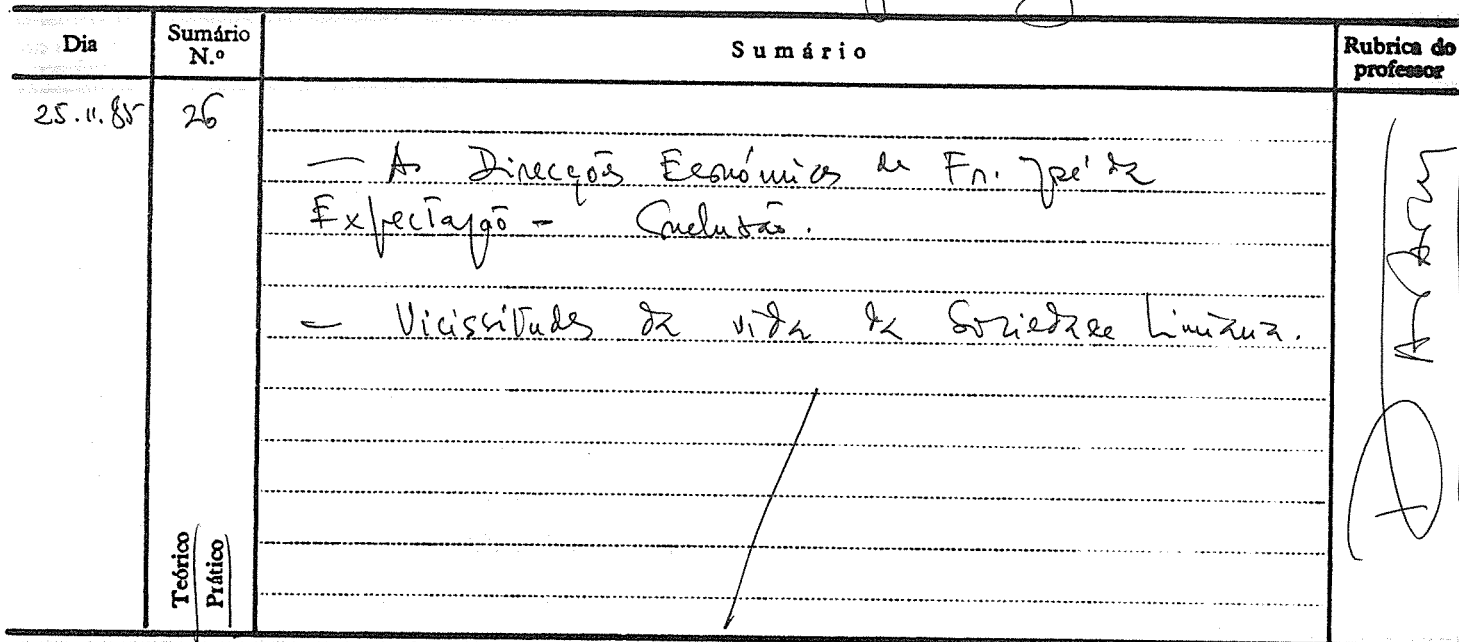 Dia
Sumário N.º
Sumário
Rubrica do professor
25.11.85
26
— As Direcções Económicas de Fr. José da
Expectação - Conclusão.
— Vicissitudes da vida da Sociedade Limiana.
Teórico
Prático